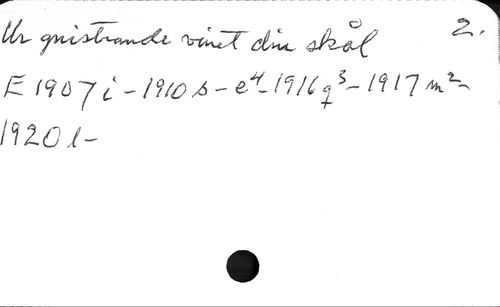 Ur gnistrande vinet din skål 2.
E 1907 i - 1910 s - e⁴ - 1916 q³ - 1917 m² -
1920 l -